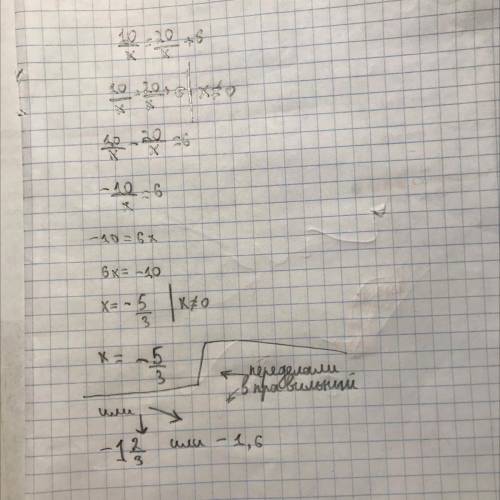 10/x = 20/x + 6
10/x = 20/x + 6 | x ≠ 0
10/x - 20/x = 6
-10/x = 6
-10 = 6x
6x = -10
x = -5/3 | x ≠ 0
x = -5/3
← переделали
в правильный
или
-1 2/3 или -1,6